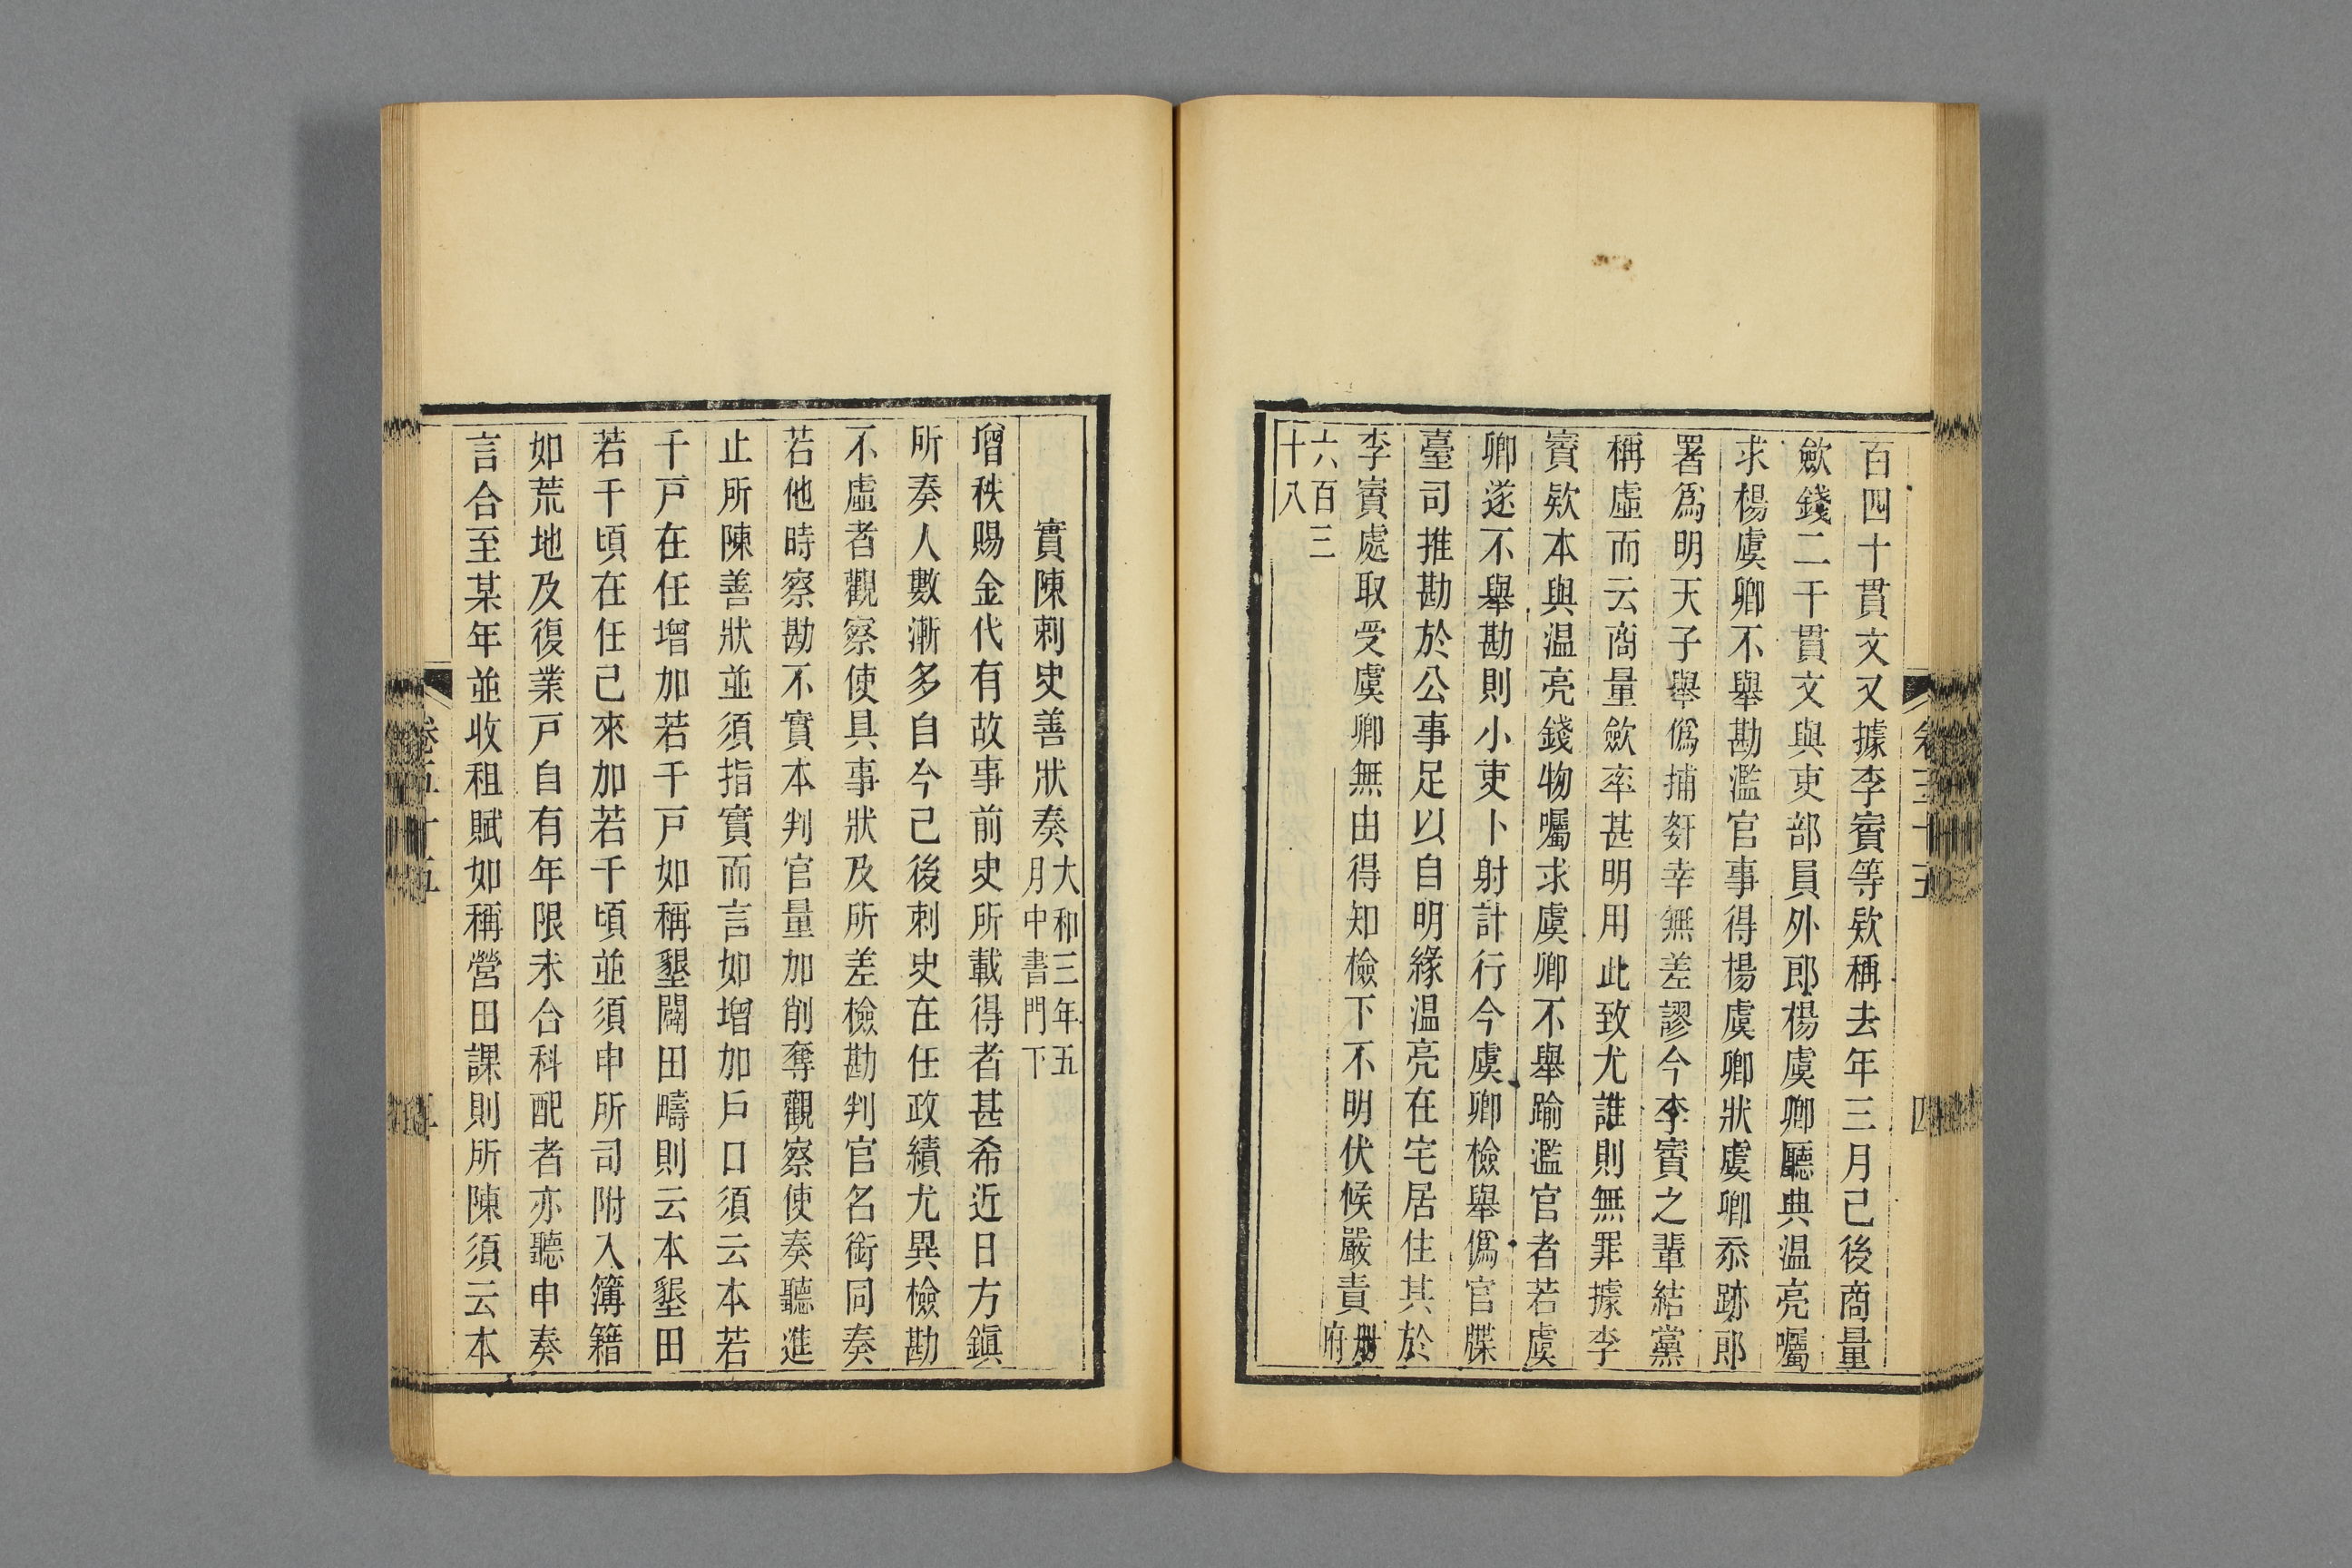 百四十貫文又據李賓等欵稱去年三月己後商量
歛錢二千貫文與吏部員外郎楊虞卿廳典温亮囑
求楊虞卿不舉勘濫官事得楊虞卿狀虞卿忝跡郎
署爲明天子舉僞捕姧幸無差謬今李賓之輩結黨
稱虛而云商量歛率甚明用此致尤誰則無罪據李
賓欵本與温亮錢物囑求虞卿不舉踰濫官者若虞
卿遂不舉勘則小吏卜射計行今虞卿檢舉僞官牒
臺司推勘於公事足以自明緣温亮在宅居住其於
李賓處取受虞卿無由得知檢下不明伏候嚴責冊府
六百三
十八
實陳刺史善狀奏大和三年五月中書門下
增秩賜金代有故事前史所載得者甚希近日方鎭
所奏人數漸多自今己後刺史在任政績尤異檢勘
不虛者觀察使具事狀及所差檢勘判官名銜同奏
若他時察勘不實本判官量加削奪觀察使奏聽進
止所陳善狀並須指實而言如增加戶口須云本若
千戸在任增加若千戸如稱墾闢田疇則云本墾田
若千頃在任己來加若千頃並須申所司附入簿籍
如荒地及復業戸自有年限未合科配者亦聽申奏
言合至某年並收租賦如稱營田課則所陳須云本